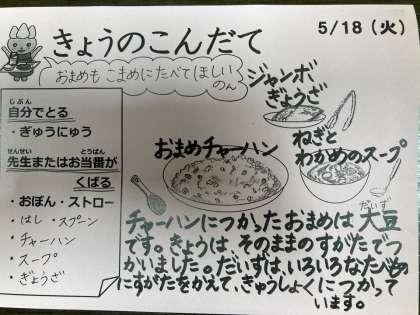 5/18（火）
きょうのこんだて
おまめも こまめにたべてほしい
のん
じぶん
自分でとる
・ぎゅうにゅう
せんせい とうばん
先生またはお当番が
くばる
・おぼん・ストロー
・はし ・スプーン
・チャーハン
・スープ
・ぎょうざ
ジャンボ
ぎょうざ
おまめチャーハン
ねぎと
わかめのスープ
だいず
チャーハンにつかったおまめは、大豆
です。きょうは、そのままのすがたでつ
かいました。だいずは、いろいろなたべもの
にすがたをかえて、きゅうしょくにつかって
います。